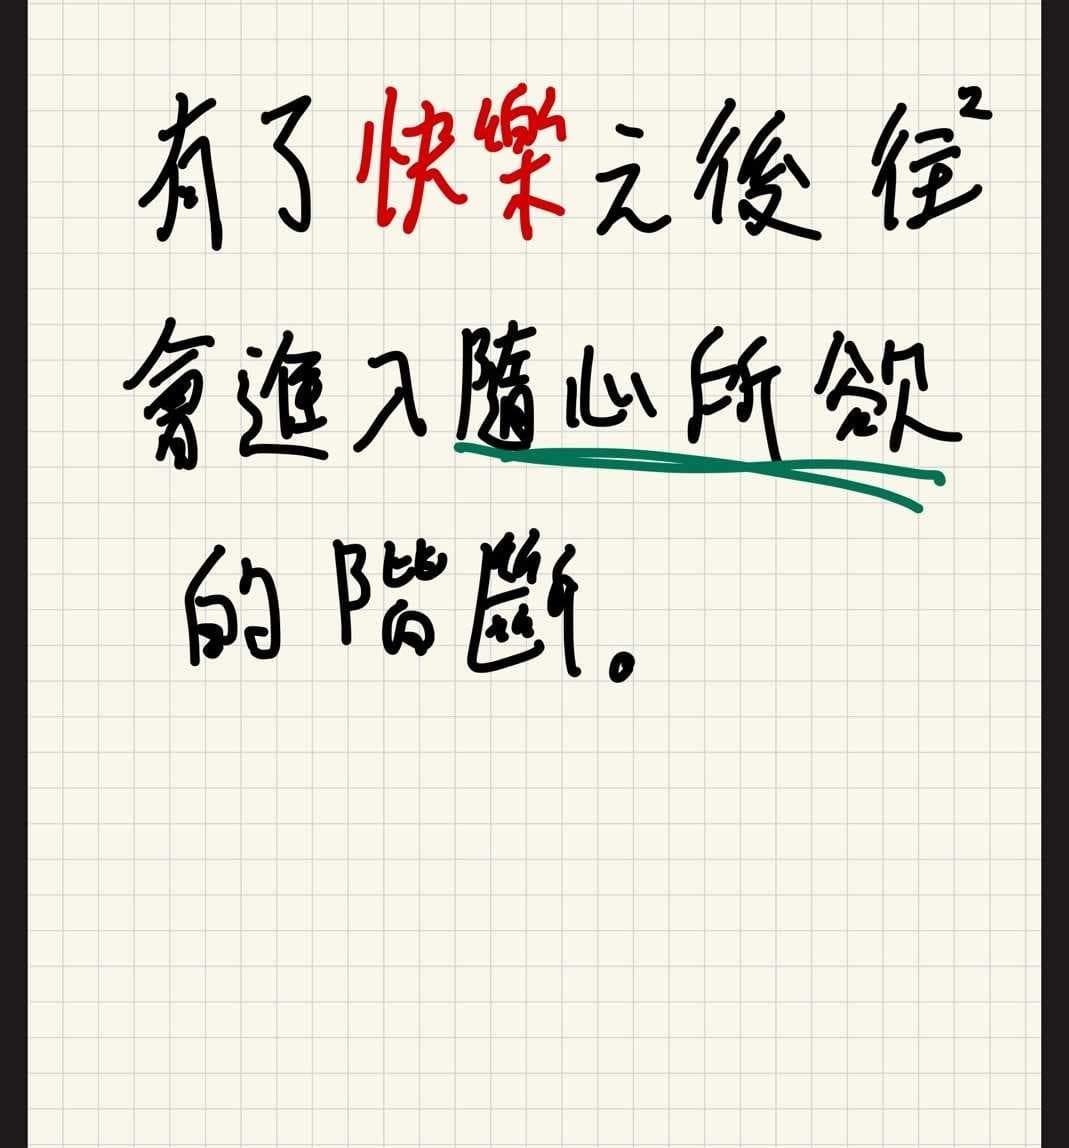 有了快樂之後往²
會進入隨心所欲
的階斷。